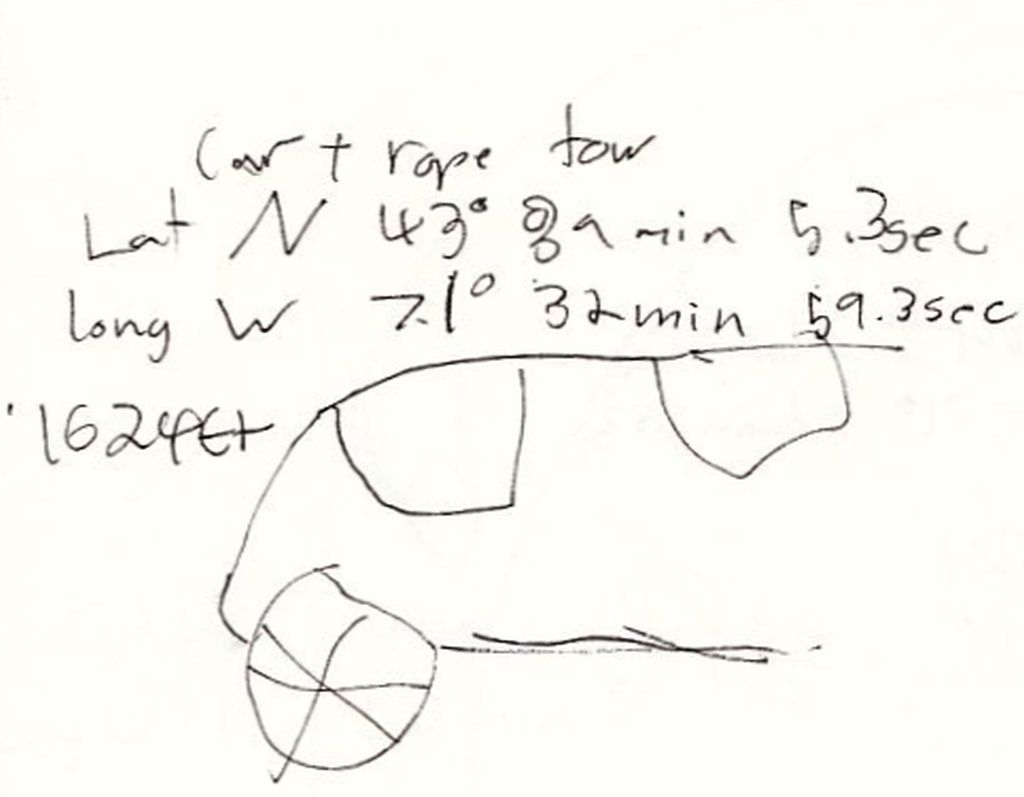 Car + rope tow
Lat N 43° min 5.3sec
long W 71° 32min 59.3sec
1624ft